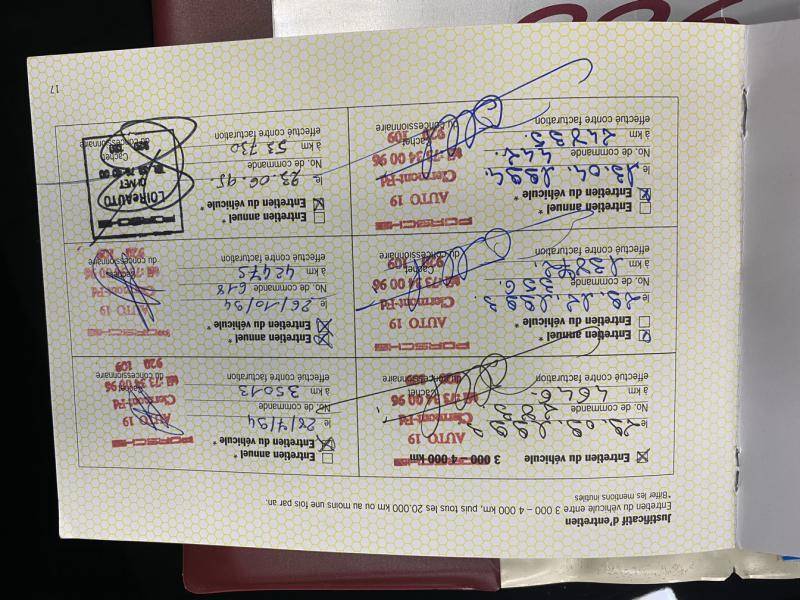 Justificatif d'entretien
Entretien du véhicule entre 3 000 – 4 000 km, puis tous les 20.000 km ou au moins une fois par an.
*Biffer les mentions inutiles
Entretien du véhicule 3 000 – 4 000 km
le 1993
No. de commande
à km 4646
effectué contre facturation
PORSCHE
AUTO 19
Clermont-Fd
73 34 00 96
Cachet
du concessionnaire
Entretien annuel *
Entretien du véhicule *
le 29.12.1993
No. de commande 356.
à km 13872
effectué contre facturation
PORSCHE
AUTO 19
Clermont-Fd
73 34 00 96
920 109
Cachet
du concessionnaire
Entretien annuel *
Entretien du véhicule *
le 13.04.1994.
No. de commande 442.
à km 24835.
effectué contre facturation
PORSCHE
AUTO 19
Clermont-Fd
73 34 00 96
920 109
Cachet
du concessionnaire
Entretien annuel *
Entretien du véhicule *
le 28/7/94
No. de commande
à km 35013
effectué contre facturation
PORSCHE
AUTO 19
Clermont-Fd
73 34 00 96
920 109
Cachet
du concessionnaire
Entretien annuel *
Entretien du véhicule *
le 26/10/94
No. de commande 618
à km 42475
effectué contre facturation
PORSCHE
AUTO 19
Clermont-Fd
73 34 00 96
920 109
Cachet
du concessionnaire
Entretien annuel *
Entretien du véhicule *
le 23.06.95
No. de commande
à km 53730
effectué contre facturation
PORSCHE
LOIREAUTO
Cachet
du concessionnaire
17